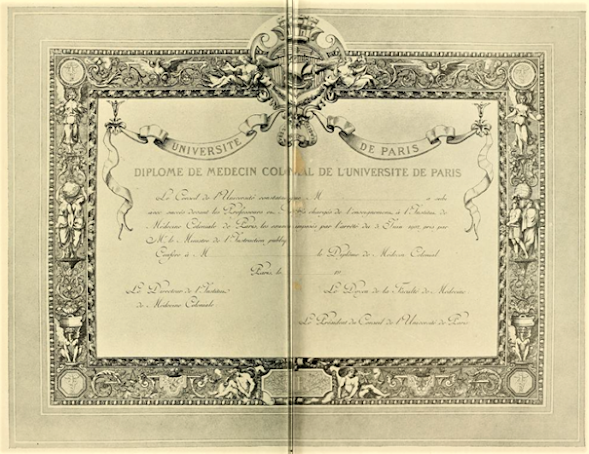 UNIVERSITE DE PARIS
DIPLOME DE MEDECIN COLONIAL DE L'UNIVERSITE DE PARIS
Le Conseil de l'Université M a subi
avec succès devant les Professeurs chargés de l'enseignement à l'Institut de
Médecine Coloniale de Paris, les par l'arrêté du Juin pris par
M. le Ministre de l'Instruction
Confère à M le Diplôme de Médecin Colonial.
Paris, le
Le Directeur de l'Institut Le Doyen de la Faculté de Médecine
de Médecine Coloniale
Le Président du Conseil de l'Université de Paris